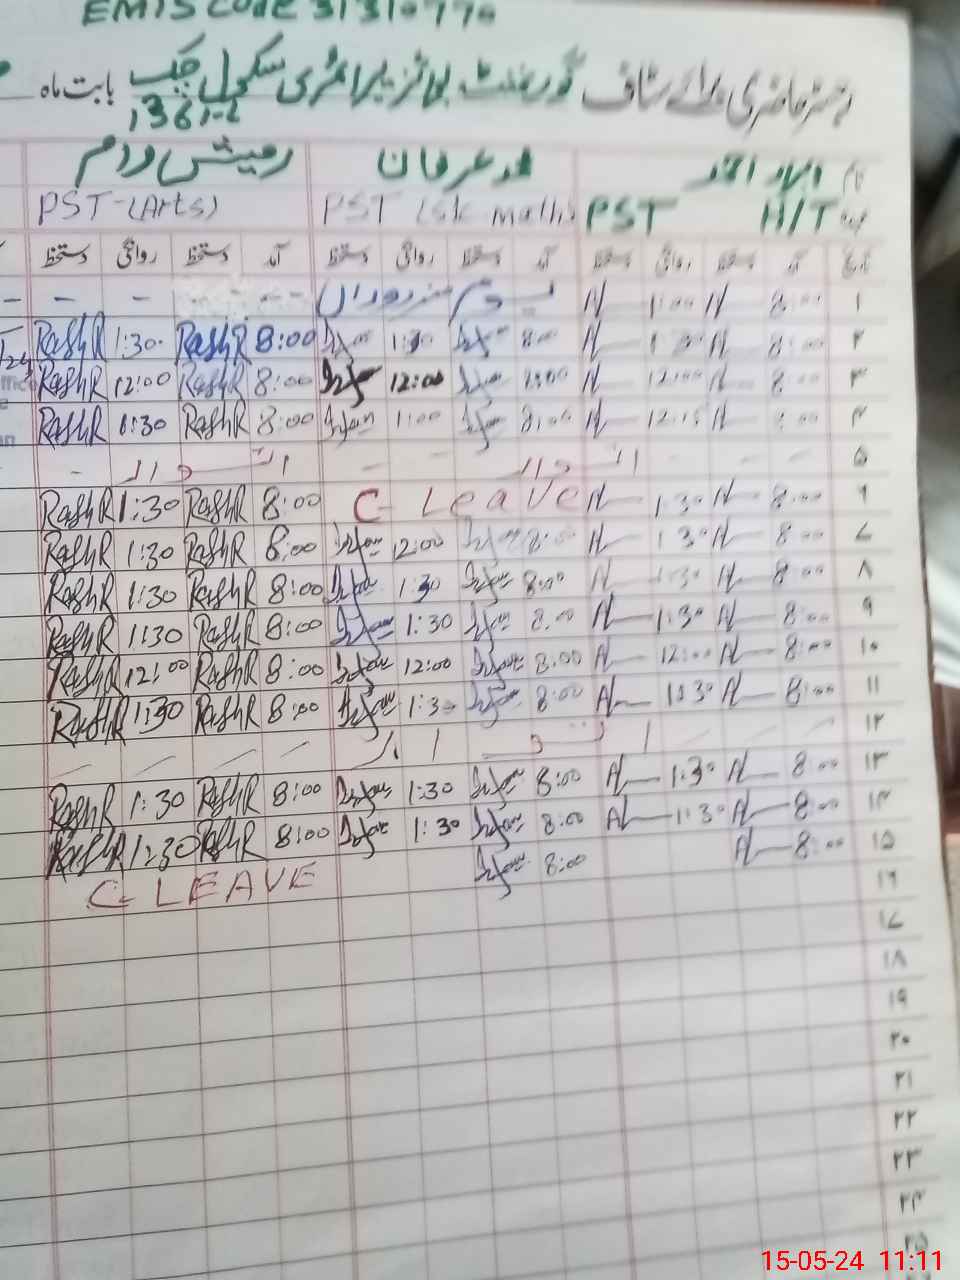 EMIS Code 31310770
رجسٹر حاضری برائے سٹاف گورنمنٹ بوائز پرائمری سکول چک بابت ماہ
136/
محمد عرفان
PST H/T PST (Sc math) PST-(Arts)
تاریخ آمد دستخط روانگی دستخط آمد دستخط روانگی دستخط آمد دستخط روانگی دستخط
۱ 8:00 1:00 یوم مزدوراں - - -
۲ 8:00 8:00 Irfan 1:30 Irfan 8:00 RashR 1:30 RashR
۳ 8:00 12:00 8:00 Irfan 12:00 Irfan 8:00 RashR 12:00 RashR
۴ 8:00 12:15 8:00 Irfan 1:00 Irfan 8:00 RashR 1:30 RashR
۵ اتوار اتوار
۶ 8:00 1:30 C- Leave 8:00 RashR 1:30 RashR
۷ 8:00 1:30 8:00 Irfan 12:00 Irfan 8:00 RashR 1:30 RashR
۸ 8:00 1:30 8:00 Irfan 1:30 Irfan 8:00 RashR 1:30 RashR
۹ 8:00 1:30 8:00 Irfan 1:30 Irfan 8:00 RashR 1:30 RashR
۱۰ 8:00 12:00 8:00 Irfan 12:00 Irfan 8:00 RashR 12:00 RashR
۱۱ 8:00 1:30 8:00 Irfan 1:30 Irfan 8:00 RashR 1:30 RashR
۱۲ اتوار
۱۳ 8:00 1:30 8:00 Irfan 1:30 Irfan 8:00 RashR 1:30 RashR
۱۴ 8:00 1:30 8:00 Irfan 1:30 Irfan 8:00 RashR 1:30 RashR
۱۵ 8:00 8:00 Irfan C- LEAVE
۱۶
۱۷
۱۸
۱۹
۲۰
۲۱
۲۲
۲۳
۲۴
۲۵
15-05-24 11:11